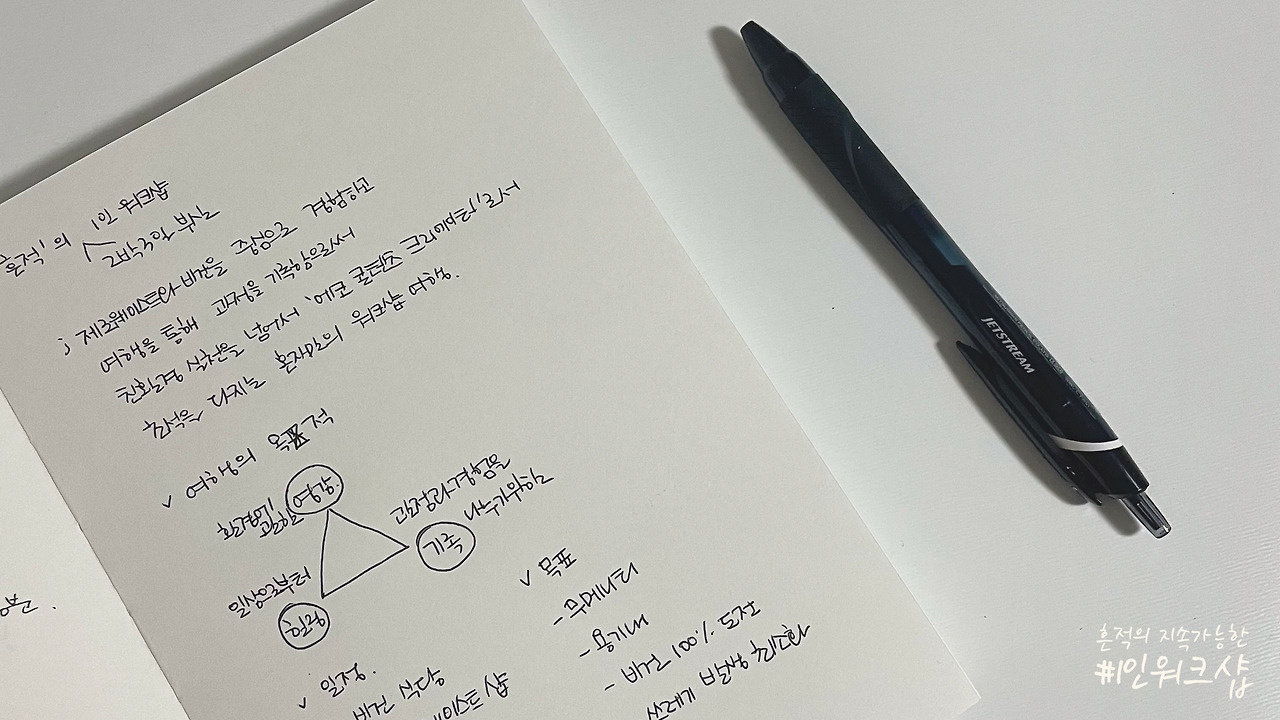 흔적'의 1인 워크샵
2박3일 부산
; 제로웨이스트와 비건을 중심으로 경험하고
여행을 통해 과정을 기록함으로써
친환경 실천을 넘어서 '에코 콘텐츠 크리에이터'로서
흔적을 다지는 혼자만의 워크샵 여행.
v 여행의 목적
환경에 관한 영감
과정과 경험을 나누기위한
기록
일상으로부터
환경
v 목표
- 무메나티
- 용기내
- 비건 100% 도전
쓰레기 발생 최소화
v 일정.
비건 식당
웨이스트 샵
분.
JETSTREAM
흔적의 지속가능한
#1인워크샵